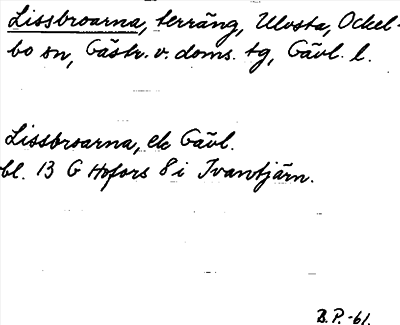 Lissbroarna, terräng, Ulvsta, Ockel-
bo sn, Gästr. v. doms. tg, Gävl. l.
Lissbroarna, ek Gävl.
bl. 13 G Hofors 8 i Ivantjärn.
B.P. -61.